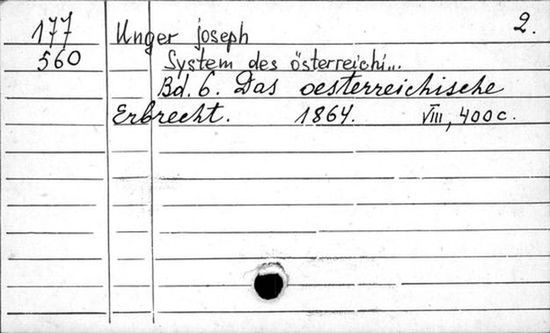 177 Unger joseph 2.
560 System des österreichi...
Bd. 6. Das oesterreichische
Erbrecht. 1864. VIII, 400 c.